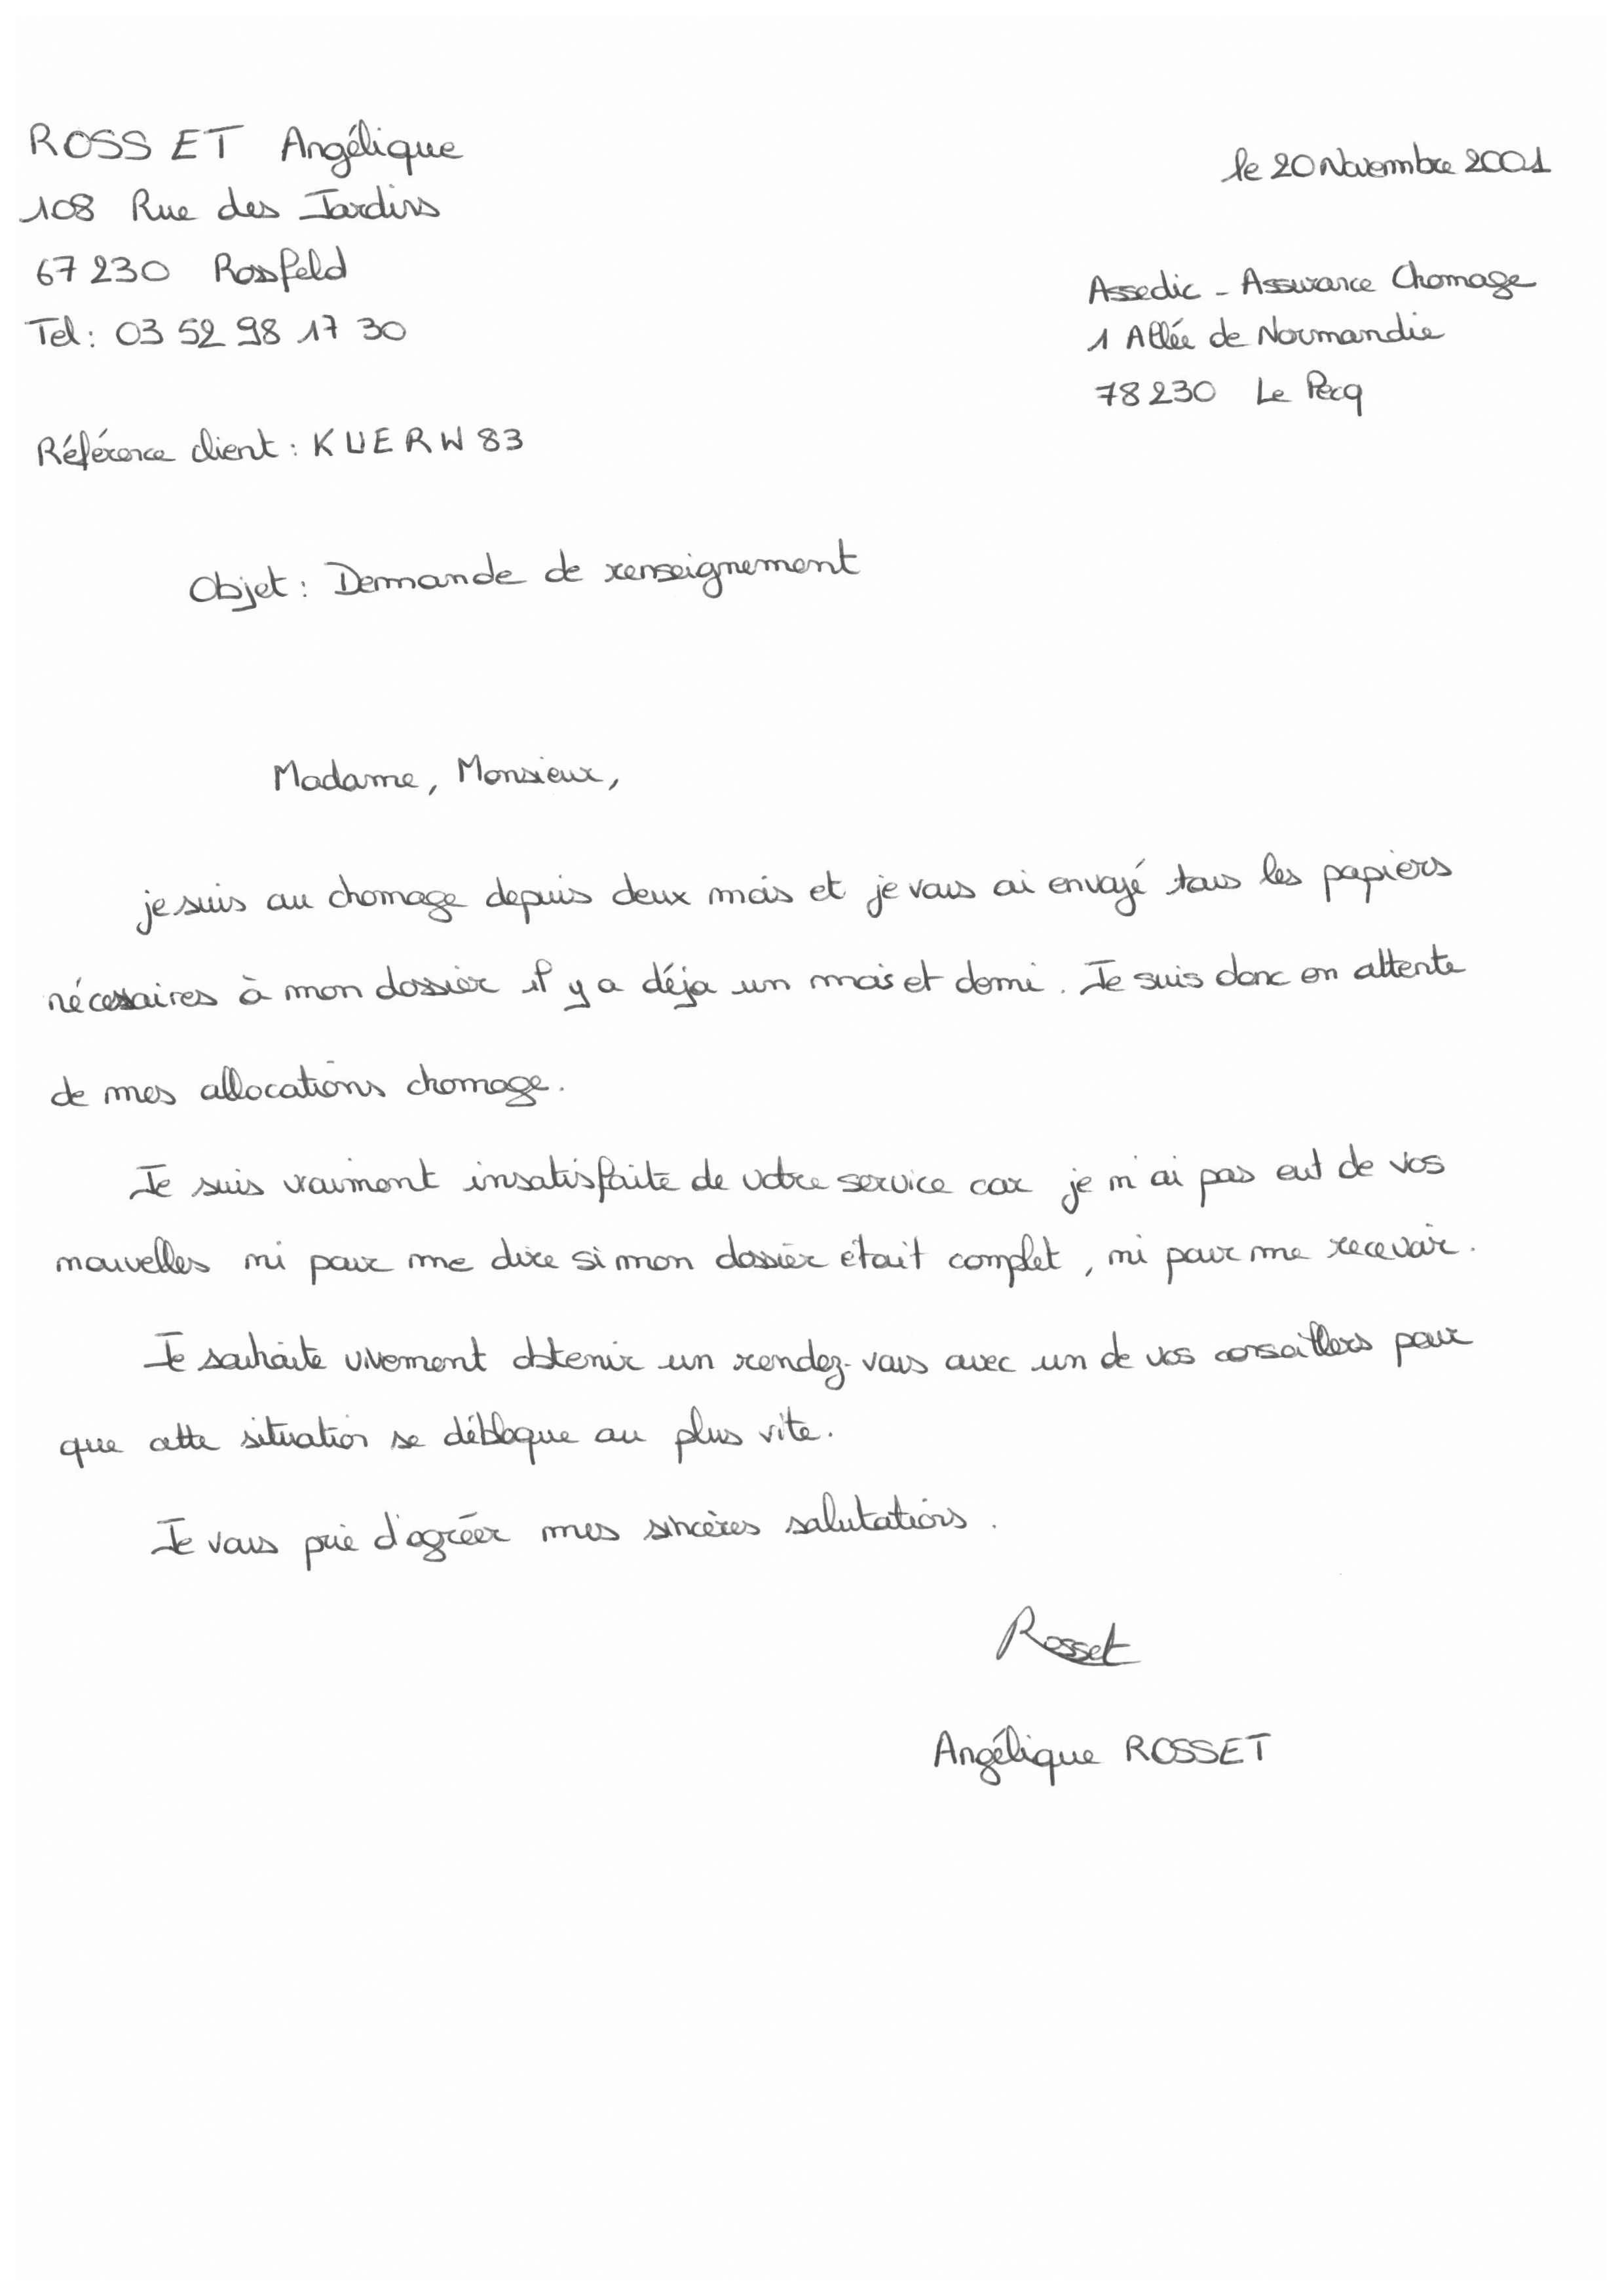 ROSSET Angélique
108 Rue des Jardins
67 230 Rossfeld
Tel: 03 52 98 17 30
le 20 Novembre 2001
Assedic - Assurance Chomage
1 Allée de Normandie
78 230 Le Pecq
Référence client : KUERW83
Objet : Demande de renseignement
Madame, Monsieur,
je suis au chomage depuis deux mois et je vous ai envoyé tous les papiers
nécessaires à mon dossier il y a déja un mois et demi. Je suis donc en attente
de mes allocations chomage.
Je suis vraiment insatisfaite de votre service car je n'ai pas eut de vos
nouvelles ni pour me dire si mon dossier était complet, ni pour me recevoir.
Je souhaite vivement obtenir un rendez-vous avec un de vos conseillers pour
que cette situation se débloque au plus vite.
Je vous prie d'agréer mes sincères salutations.
Rosset
Angélique ROSSET